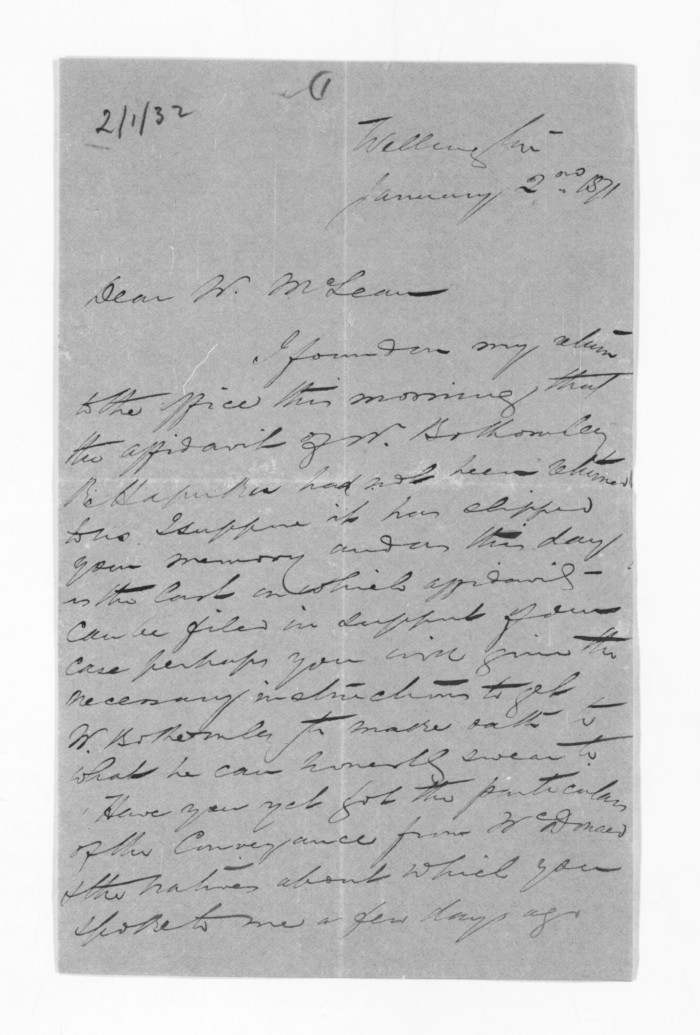 2/1/32
Wellington
January 2nd 1871
Dear Mr. McLean
I found on my return
to the office this morning that
the affidavit of Mr. Bothomley
Re Hapuku had not been returned
to us I suppose it has slipped
your memory and as this day
is the last on which affidavits
can be filed in support of our
case perhaps you will give the
necessary instructions to get
Mr. Bothomley to make oath to
what he can honestly swear to
Have you yet got the particulars
of the Conveyance from McDonald
& the natives about which you
spoke to me a few days ago